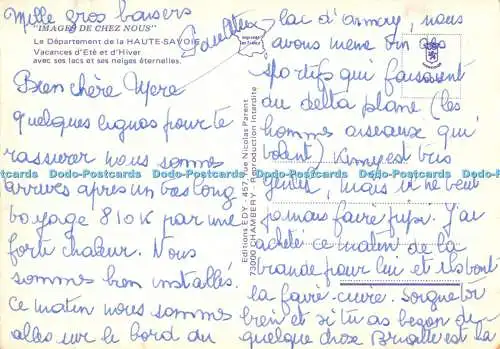 Mille gros baisers
"IMAGES DE CHEZ NOUS"
Le Département de la HAUTE-SAVOIE
Vacances d'Eté et d'Hiver
avec ses lacs et ses neiges éternelles.
Bien chère
quelques lignes pour te
rassurer nous sommes
arrivés après un très long
voyage 810 K par une
forte chaleur. Nous
sommes bien installés.
Ce matin nous sommes
allés sur le bord du
lac d'annecy, nous
avons même des
sportifs qui faisaient
du delta plane (les
hommes oiseaux qui
volent) Kimy est très
gentil, mais il ne veut
jamais faire pipi. J'ai
acheté ce matin de la
viande pour lui et ils vont
la faire cuire. soigne toi
bien et si tu as besoin de
quelque chose est là
Editions EDY - 457, rue Nicolas Parent
73000 CHAMBERY - Reproduction Interdite
Dodo-Postcards Dodo-Postcards Dodo-Postcards Dodo-Postcards